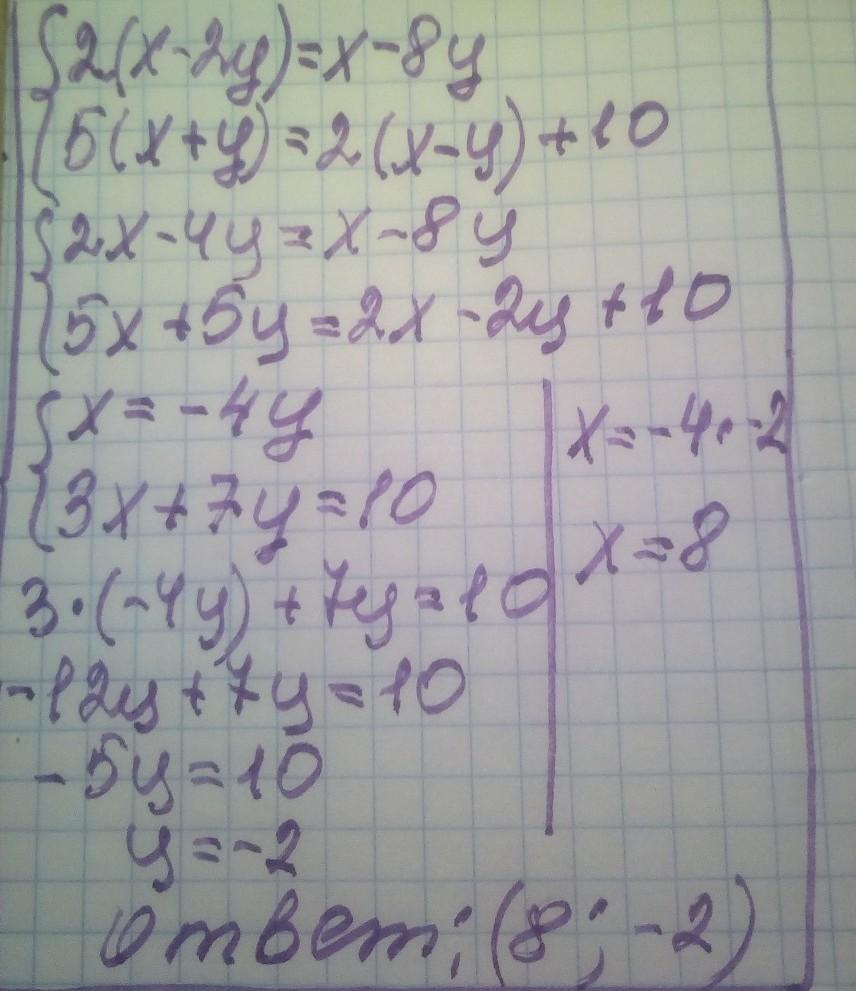 {2(x-2y)=x-8y
{5(x+y)=2(x-y)+10
{2x-4y=x-8y
{5x+5y=2x-2y+10
{x=-4y
{3x+7y=10
3·(-4y)+7y=10
-12y+7y=10
-5y=10
y=-2
x=-4·-2
x=8
Ответ: (8; -2)